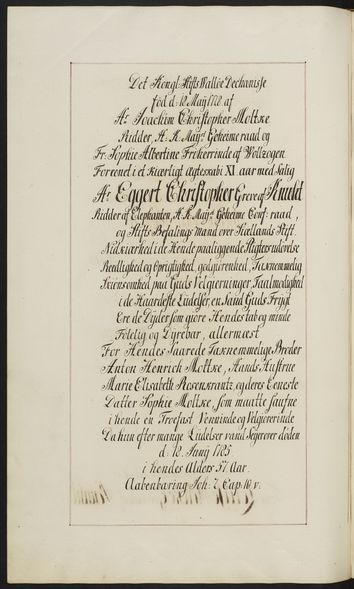 Det Kongl Stifts Walløe Dechanisse
fød d. 12 Maij 1728 af
Hr Joachim Christopher Moltke
Ridder, H. K. Mayts Geheime raad og
Fr. Sophie Albertine Freherrinde af Wollzogen
Foreenet i et Kiærligt Ægteskab i XI aar med Salig
Hr Eggert Christopher Greve af Knuth
Ridder af Elephanten, H. K. Mayts Geheime Conf: raad,
og Stifts Befalings Mand over Siællands Stift.
Nidkiærhed i de Hende paaliggende Pligters udøvelse
Reedlighed og Oprigtighed, godgiørenhed, Taknemmelig
Skiønsomhed paa Guds Velgierninger, Taalmodighed
i de Haardeste Liidelser, en Sand Guds Frygt
Ere de Dyder som giøre Hendes tab og minde
Føleliq og Dyrebar, allermæst
For Hendes Saarede Taknemmelige Broder
Anton Henrich Moltke, Hands Hustrue
Marie Elisabeth Rosenkrantz, og deres Eeneste
Datter Sophie Moltke, som maatte saufne
i hende en Troefast Venninde og Velgiørerinde
Da hun efter mange Liidelser vand Seyerover døden
d. 12. Junij 1785
i hendes Alders 57 Aar.
Aabenbaring Joh: 7. Cap: 16 v.